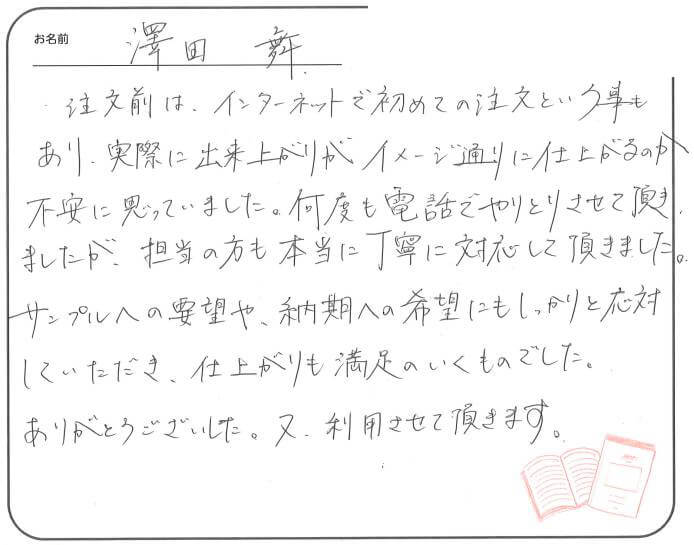 お名前 澤田 舞
注文前は、インターネットで初めての注文という事も
あり、実際に出来上がりがイメージ通りに仕上がるのか
不安に思っていました。何度も電話でやりとりさせて頂き
ましたが、担当の方も本当に丁寧に対応して頂きました。
サンプルへの要望や、納期への希望にもしっかりと応対
していただき、仕上がりも満足のいくものでした。
ありがとうございました。又、利用させて頂きます。